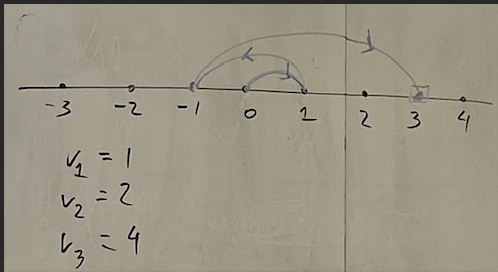 -3 -2 -1 0 1 2 3 4
v₁ = 1
v₂ = 2
v₃ = 4